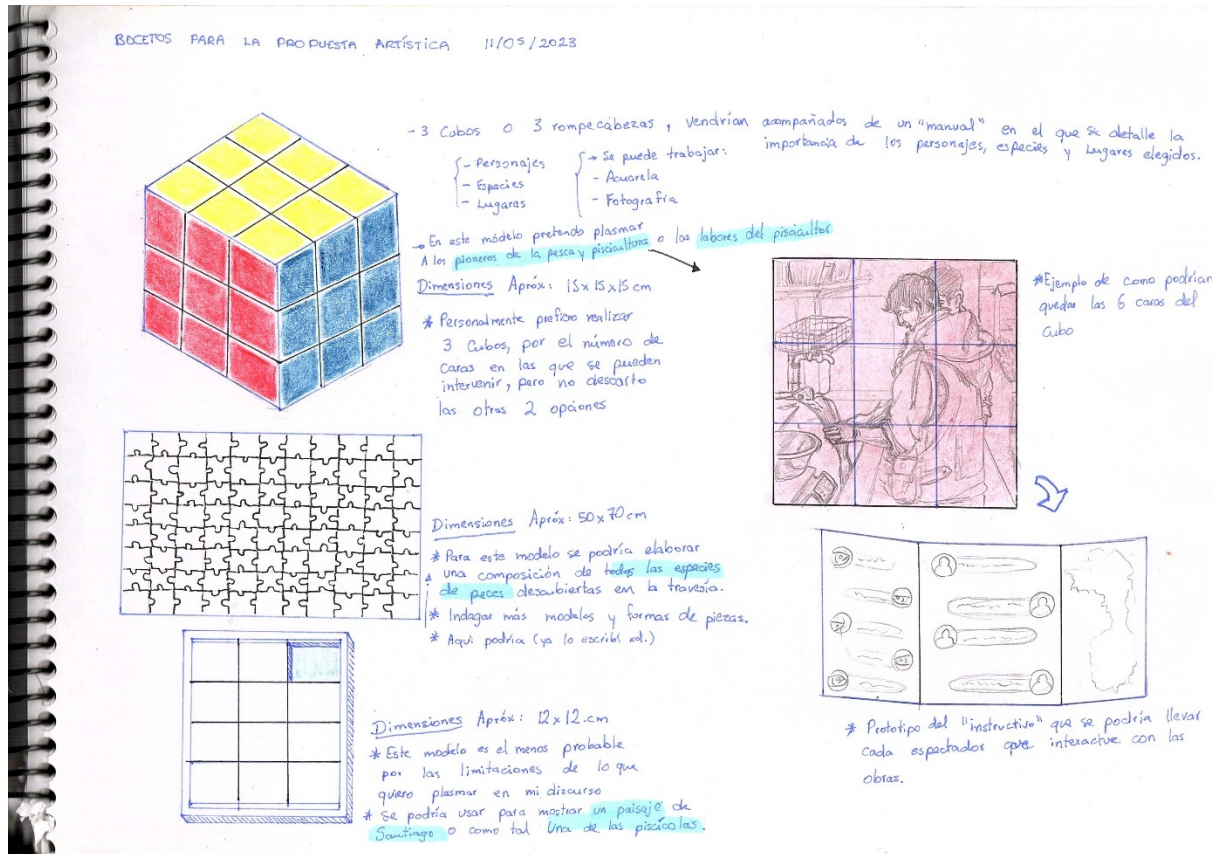 BOCETOS PARA LA PROPUESTA ARTÍSTICA 11/05/2023
- 3 Cubos o 3 rompecabezas, vendrían acompañados de un "manual" en el que se detalle la
importancia de los personajes, especies y Lugares elegidos.
- Personajes
- Especies
- Lugares
→ Se puede trabajar:
- Acuarela
- Fotografía
→ En este módelo pretendo plasmar
A los pioneros de la pesca y piscicultura o las labores del piscicultor
Dimensiones Apróx: 15x15x15 cm
* Personalmente prefiero realizar
3 Cubos, por el número de
caras en las que se pueden
intervenir, pero no descarto
las otras 2 opciones
*Ejemplo de como podrían
quedar las 6 caras del
cubo
Dimensiones Apróx: 50x70 cm
* Para este modelo se podría elaborar
una composición de todas las especies
de peces descubiertas en la travesía.
* Indagar más modelos y formas de piezas.
* Aqui podría (ya lo escribí xd.)
Dimensiones Apróx: 12x12.cm
* Este modelo es el menos probable
por las limitaciones de lo que
quiero plasmar en mi discurso
* Se podría usar para mostrar un paisaje de
Santiago o como tal Una de las piscícolas.
* Prototipo del "instructivo" que se podría llevar
cada espectador que interactue con las
obras.